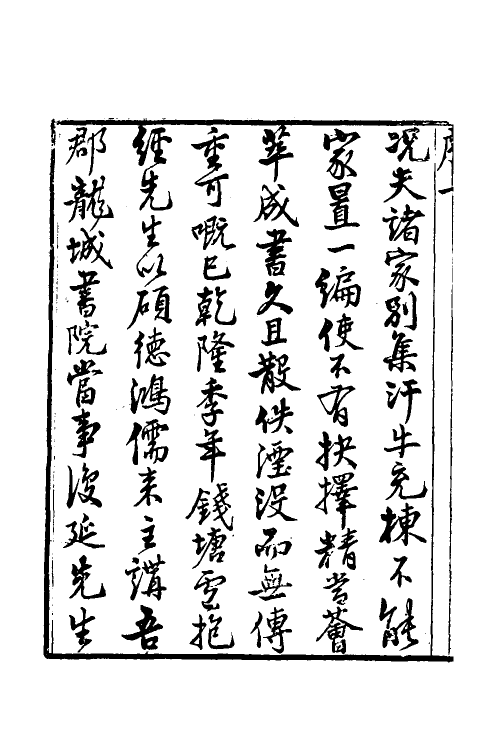 序一
况夫諸家別集汗牛充棟不能
家置一編使不有抉擇精當薈
萃成書久且散佚湮没而無傳
重可嘅已乾隆季年錢塘盧抱
經先生以碩德鴻儒来主講吾
郡龍城書院當事復延先生